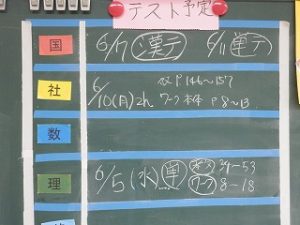 テスト予定
国 6/7 漢テ 6/11 単テ
社 6/10(月)2h P146〜157
ワーク本体 P8〜13
数
理 6/5(水) 単 34-53
ワーク 8-18